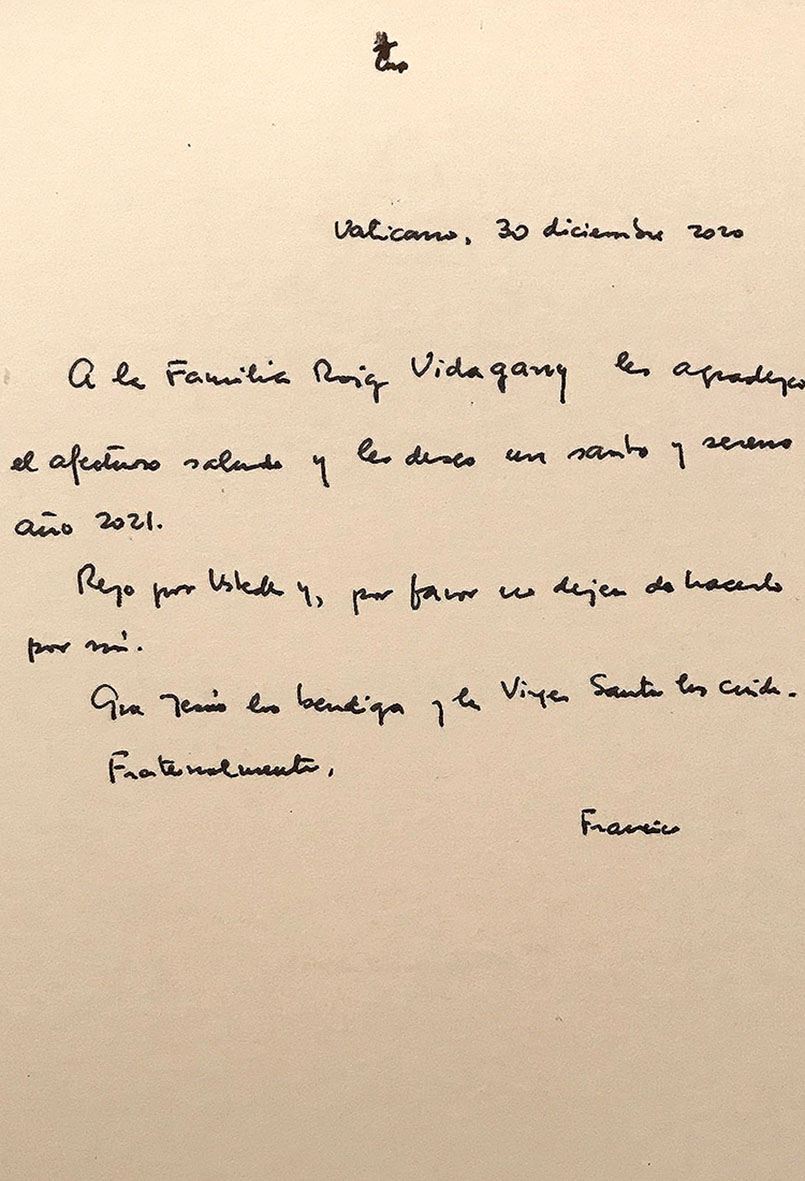 Vaticano, 30 diciembre 2020
A la Familia Roig Vidagany les agradezco
el afectuoso saludo y les deseo un santo y sereno
año 2021.
Rezo por Ustedes y, por favor no dejen de hacerlo
por mí.
Que Jesús los bendiga y la Virgen Santa los cuide.
Fraternalmente,
Francisco